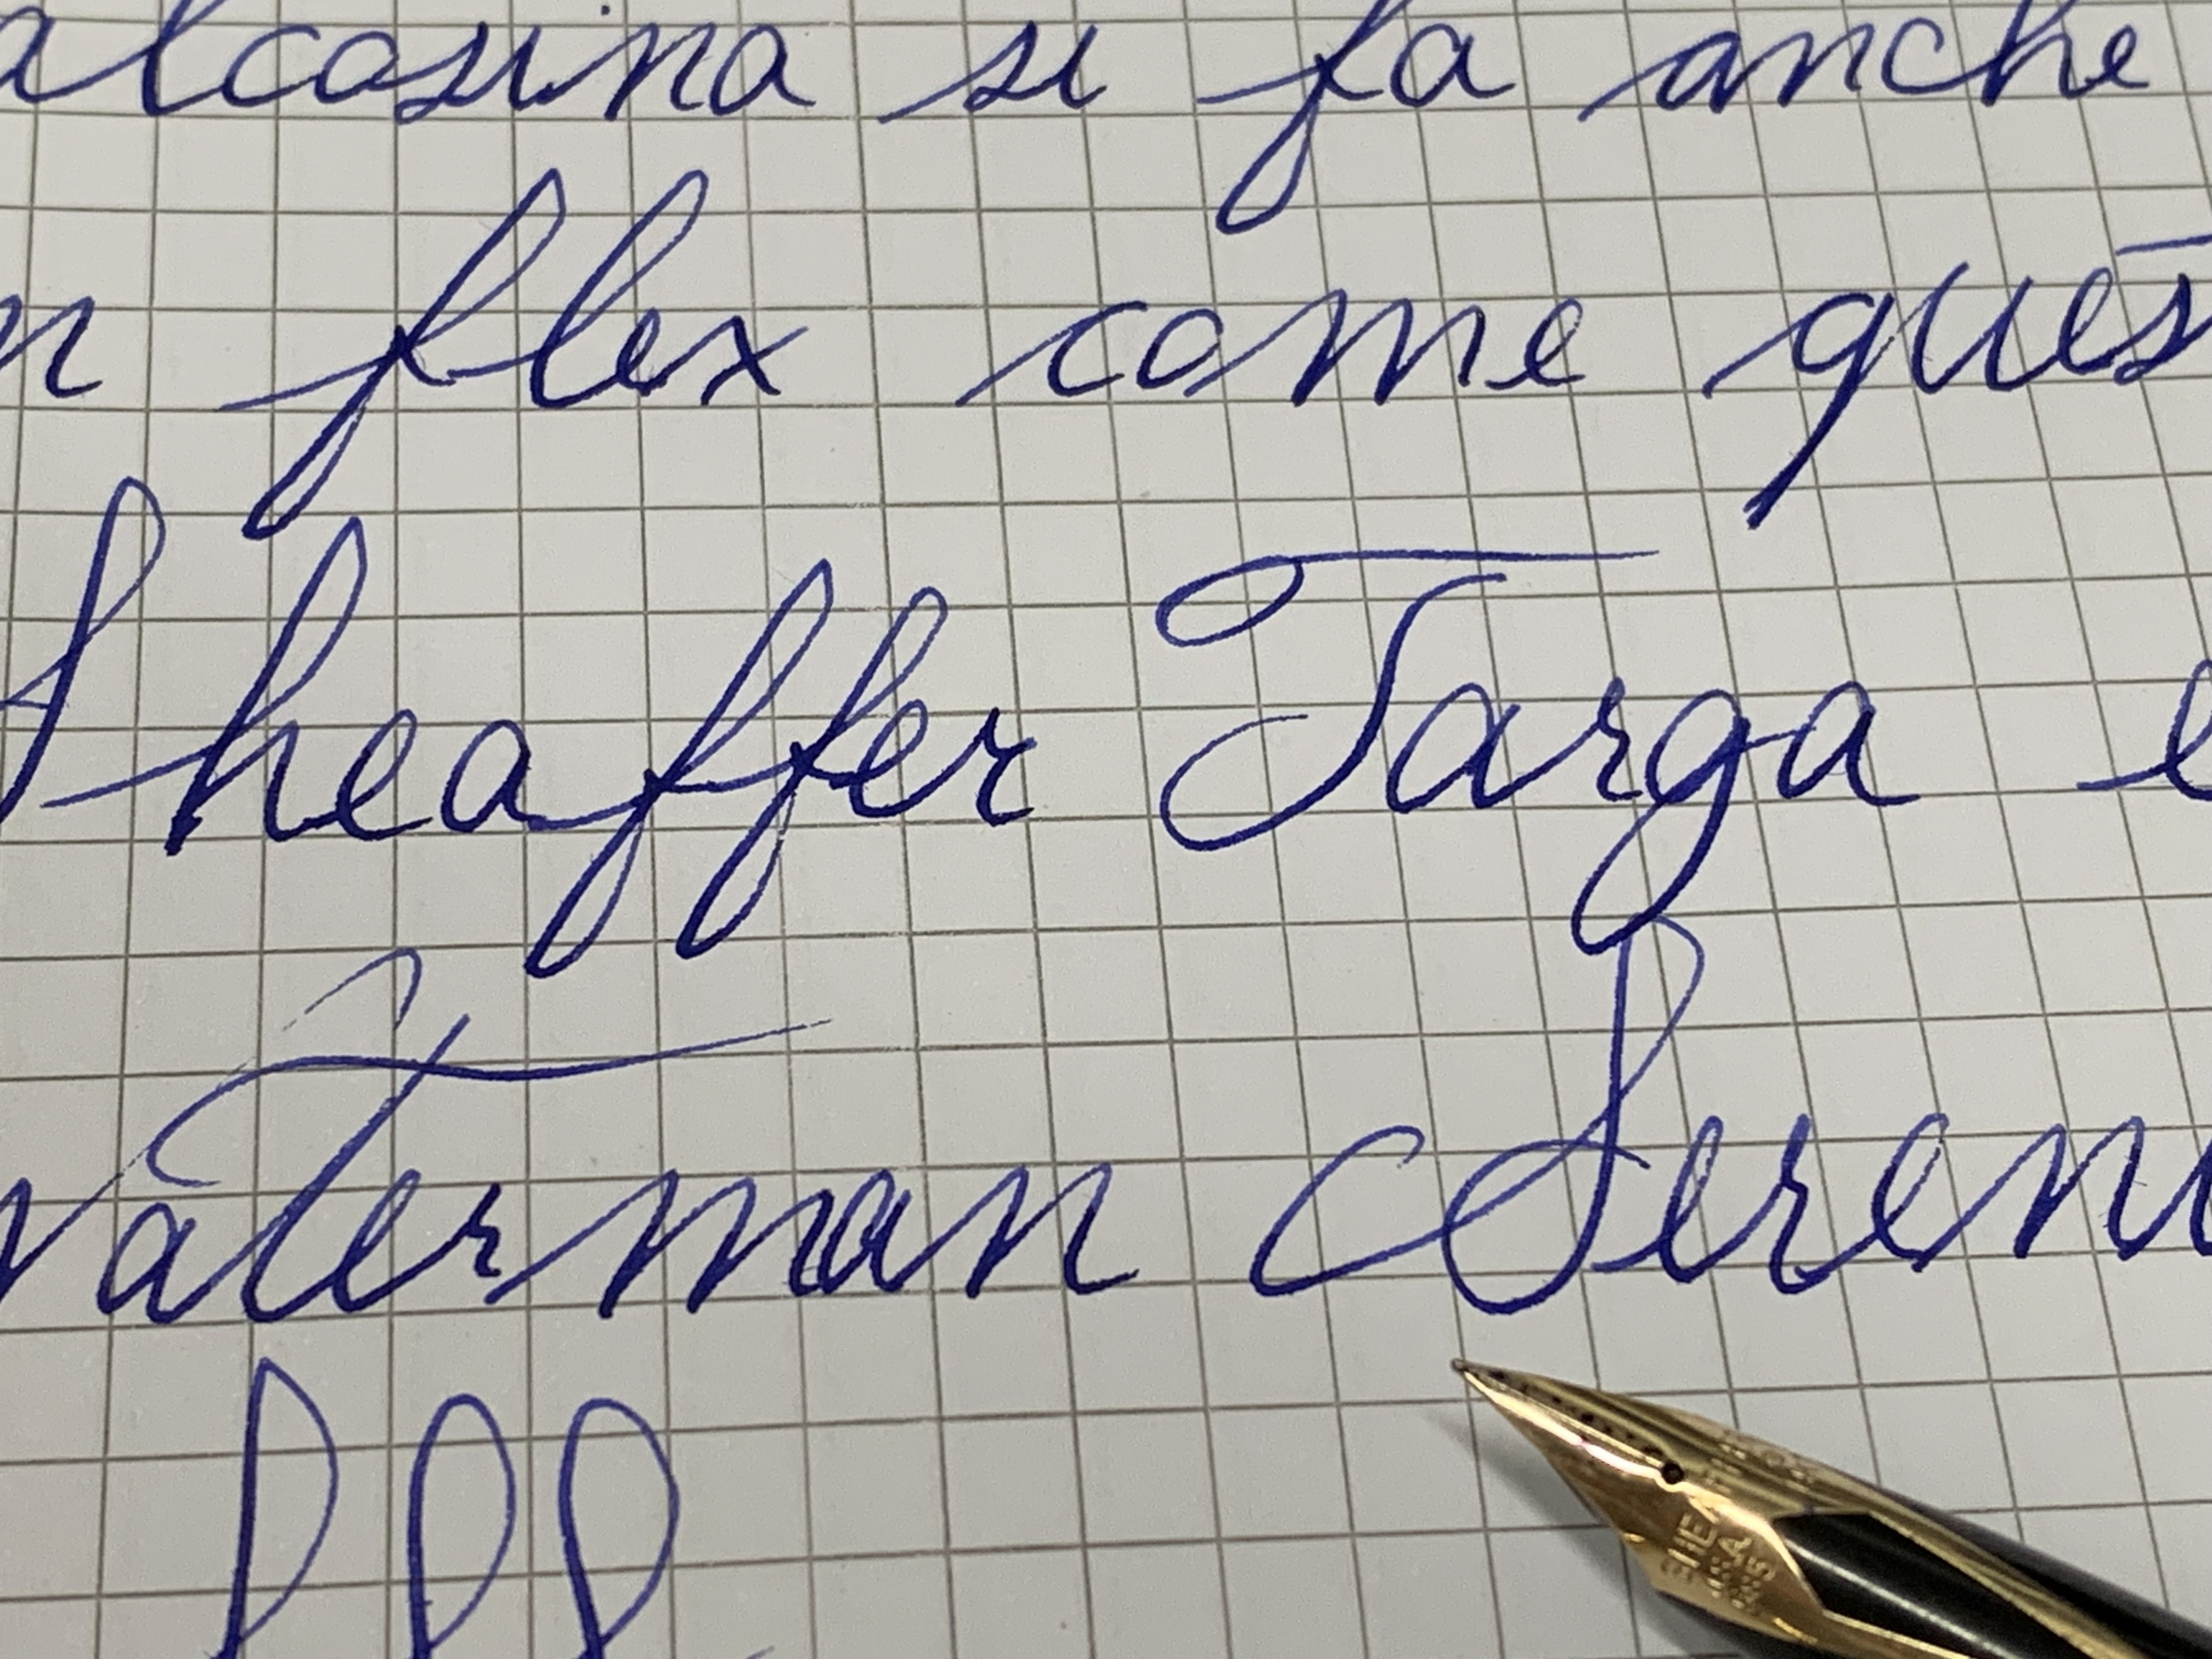 alcosina si fa anche
n flex come ques
Sheaffer Targa e
Waterman Seren
SHE
USA
585